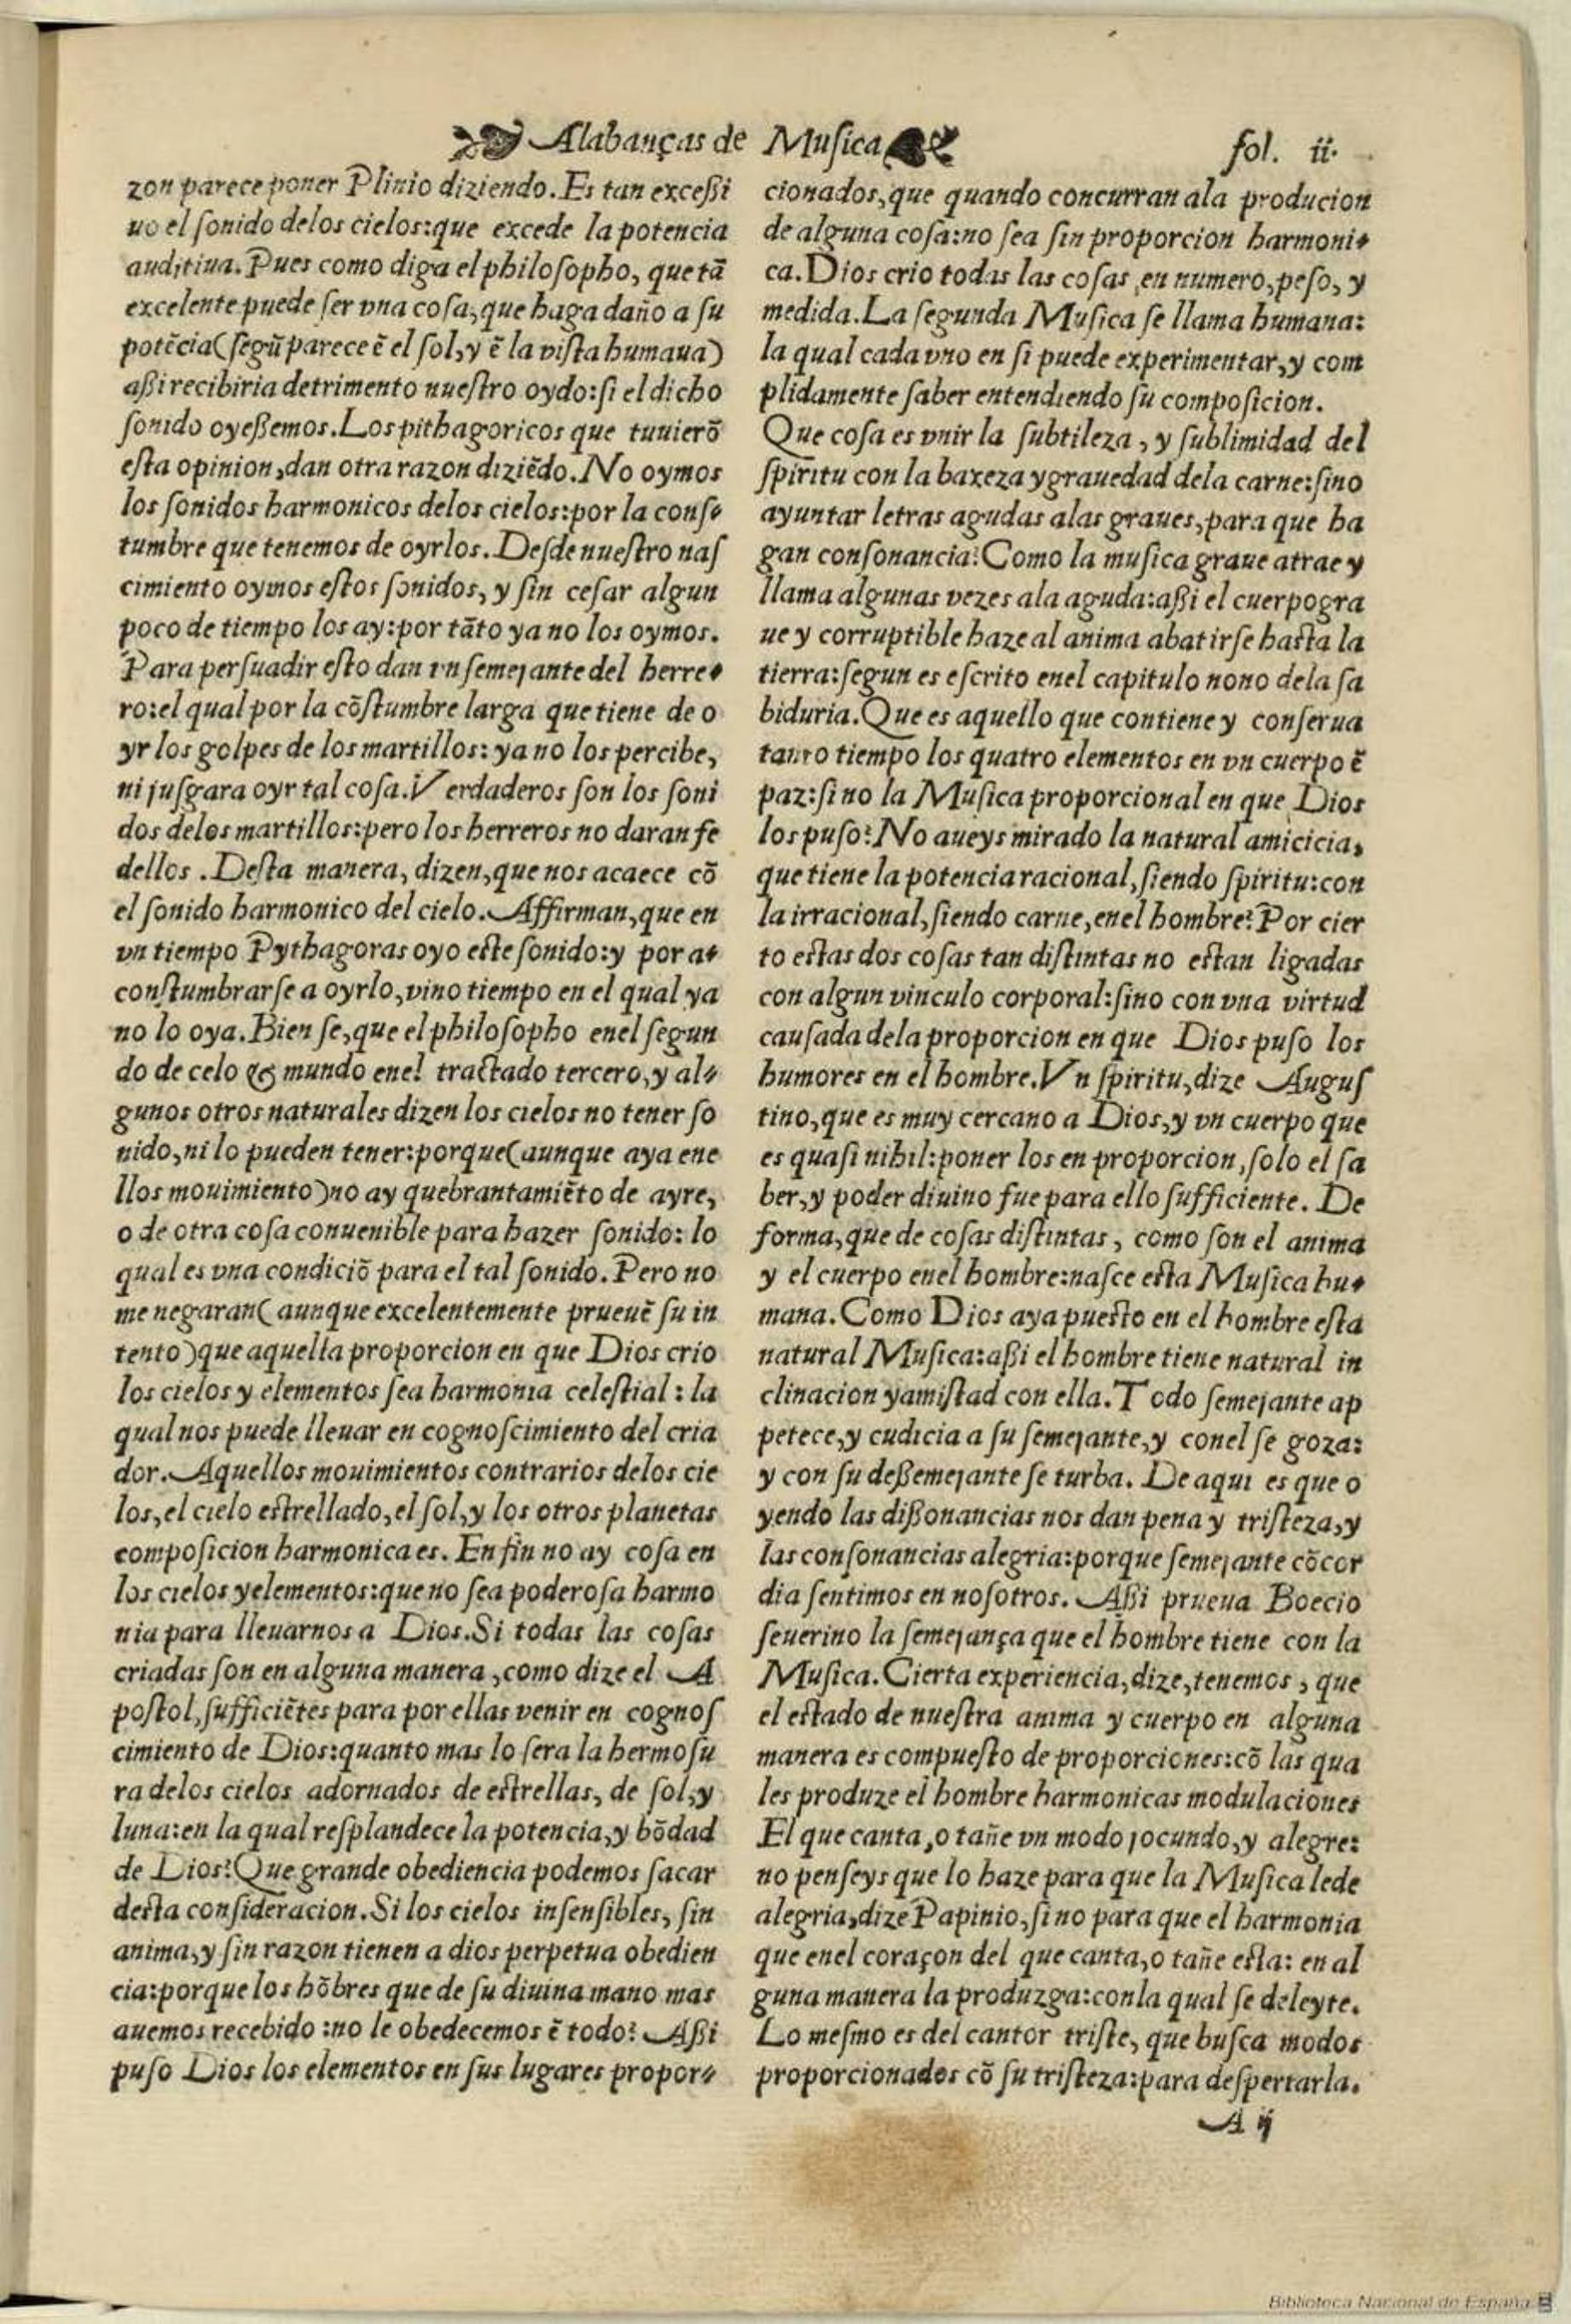 Alabanças de Musica
fol. ii.
zon parece poner Plinio diziendo. Es tan exceßi
uo el ſonido delos cielos:que excede la potencia
auditiua. Pues como diga el philoſopho, que tã
excelente puede ſer vna coſa, que haga daño a ſu
potẽcia(ſegũ parece ẽ el ſol, y ẽ la viſta humana)
aßi recibiria detrimento nueſtro oydo:ſi el dicho
ſonido oyeßemos. Los pithagoricos que tuuierõ
eſta opinion, dan otra razon diziẽdo. No oymos
los ſonidos harmonicos delos cielos:por la conſ-
tumbre que tenemos de oyrlos. Deſde nueſtro naſ
cimiento oymos eſtos ſonidos, y ſin ceſar algun
poco de tiempo los ay:por tãto ya no los oymos.
Para perſuadir eſto dan vn ſemejante del herre-
ro:el qual por la cõſtumbre larga que tiene de o
yr los golpes de los martillos: ya no los percibe,
ni juſgara oyr tal coſa. Verdaderos ſon los ſoni
dos delos martillos:pero los herreros no daran fe
dellos. Deſta manera, dizen, que nos acaece cõ
el ſonido harmonico del cielo. Affirman, que en
vn tiempo Pythagoras oyo eſte ſonido:y por a-
conſtumbrarſe a oyrlo, vino tiempo en el qual ya
no lo oya. Bien ſe, que el philoſopho enel ſegun
do de celo & mundo enel tractado tercero, y al-
gunos otros naturales dizen los cielos no tener ſo
nido, ni lo pueden tener:porque(aunque aya ene
llos mouimiento)no ay quebrantamiẽto de ayre,
o de otra coſa conuenible para hazer ſonido: lo
qual es vna condiciõ para el tal ſonido. Pero no
me negaran(aunque excelentemente prueuẽ ſu in
tento)que aquella proporcion en que Dios crio
los cielos y elementos ſea harmonia celeſtial : la
qual nos puede lleuar en cognoſcimiento del cria
dor. Aquellos mouimientos contrarios delos cie
los, el cielo eſtrellado, el ſol, y los otros planetas
compoſicion harmonica es. En fin no ay coſa en
los cielos y elementos:que no ſea poderoſa harmo
nia para lleuarnos a Dios. Si todas las coſas
criadas ſon en alguna manera, como dize el A
poſtol, ſufficiẽtes para por ellas venir en cognoſ
cimiento de Dios:quanto mas lo ſera la hermoſu
ra delos cielos adornados de eſtrellas, de ſol, y
luna:en la qual reſplandece la potencia, y bõdad
de Dios? Que grande obediencia podemos ſacar
deſta conſideracion. Si los cielos inſenſibles, ſin
anima, y ſin razon tienen a dios perpetua obedien
cia:porque los hõbres que de ſu diuina mano mas
auemos recebido :no le obedecemos ẽ todo? Aßi
puſo Dios los elementos en ſus lugares propor-
cionados, que quando concurran ala producion
de alguna coſa:no ſea ſin proporcion harmoni-
ca. Dios crio todas las coſas en numero, peſo, y
medida. La ſegunda Muſica ſe llama humana:
la qual cada vno en ſi puede experimentar, y com
plidamente ſaber entendiendo ſu compoſicion.
Que coſa es vnir la ſubtileza, y ſublimidad del
ſpiritu con la baxeza y grauedad dela carne:ſino
ayuntar letras agudas alas graues, para que ha
gan conſonancia? Como la muſica graue atrae y
llama algunas vezes ala aguda:aßi el cuerpo gra
ue y corruptible haze al anima abatirſe haſta la
tierra:ſegun es eſcrito enel capitulo nono dela ſa
biduria. Que es aquello que contiene y conſerua
tanto tiempo los quatro elementos en vn cuerpo ẽ
paz:ſi no la Muſica proporcional en que Dios
los puſo? No aueys mirado la natural amicicia,
que tiene la potencia racional, ſiendo ſpiritu:con
la irracional, ſiendo carne, enel hombre? Por cier
to eſtas dos coſas tan diſtintas no eſtan ligadas
con algun vinculo corporal:ſino con vna virtud
cauſada dela proporcion en que Dios puſo los
humores en el hombre. Vn ſpiritu, dize Auguſ
tino, que es muy cercano a Dios, y vn cuerpo que
es quaſi nihil:poner los en proporcion, ſolo el ſa
ber, y poder diuino fue para ello ſufficiente. De
forma, que de coſas diſtintas, como ſon el anima
y el cuerpo enel hombre:naſce eſta Muſica hu-
mana. Como Dios aya pueſto en el hombre eſta
natural Muſica:aßi el hombre tiene natural in
clinacion y amiſtad con ella. Todo ſemejante ap
petece, y cudicia a ſu ſemejante, y conel ſe goza:
y con ſu deßemejante ſe turba. De aqui es que o
yendo las dißonancias nos dan pena y triſteza, y
las conſonancias alegria:porque ſemejante cõcor
dia ſentimos en noſotros. Aßi prueua Boecio
ſeuerino la ſemejança que el hombre tiene con la
Muſica. Cierta experiencia, dize, tenemos, que
el eſtado de nueſtra anima y cuerpo en alguna
manera es compueſto de proporciones:cõ las qua
les produze el hombre harmonicas modulaciones
El que canta, o tañe vn modo jocundo, y alegre:
no penſeys que lo haze para que la Muſica lede
alegria, dize Papinio, ſi no para que el harmonia
que enel coraçon del que canta, o tañe eſta: en al
guna manera la produzga:conla qual ſe deleyte.
Lo meſmo es del cantor triſte, que buſca modos
proporcionados cõ ſu triſteza:para deſpertarla.
A ij
Biblioteca Nacional de España